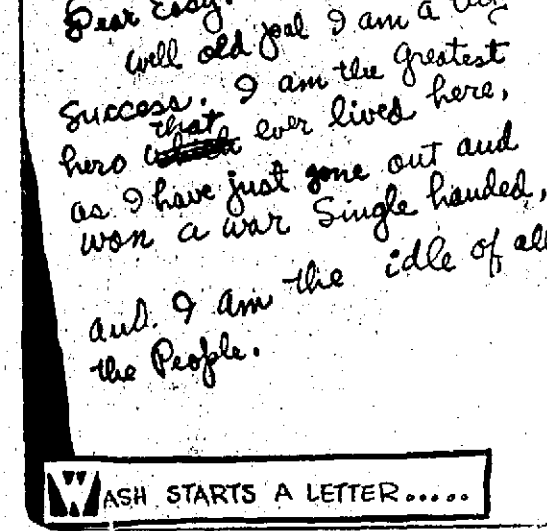 Dear Easy.
Well old pal I am a big
success. I am the greatest
hero that which ever lived here,
as I have just gone out and
won a war single handed,
and I am the idle of all
the People.
WASH STARTS A LETTER.....